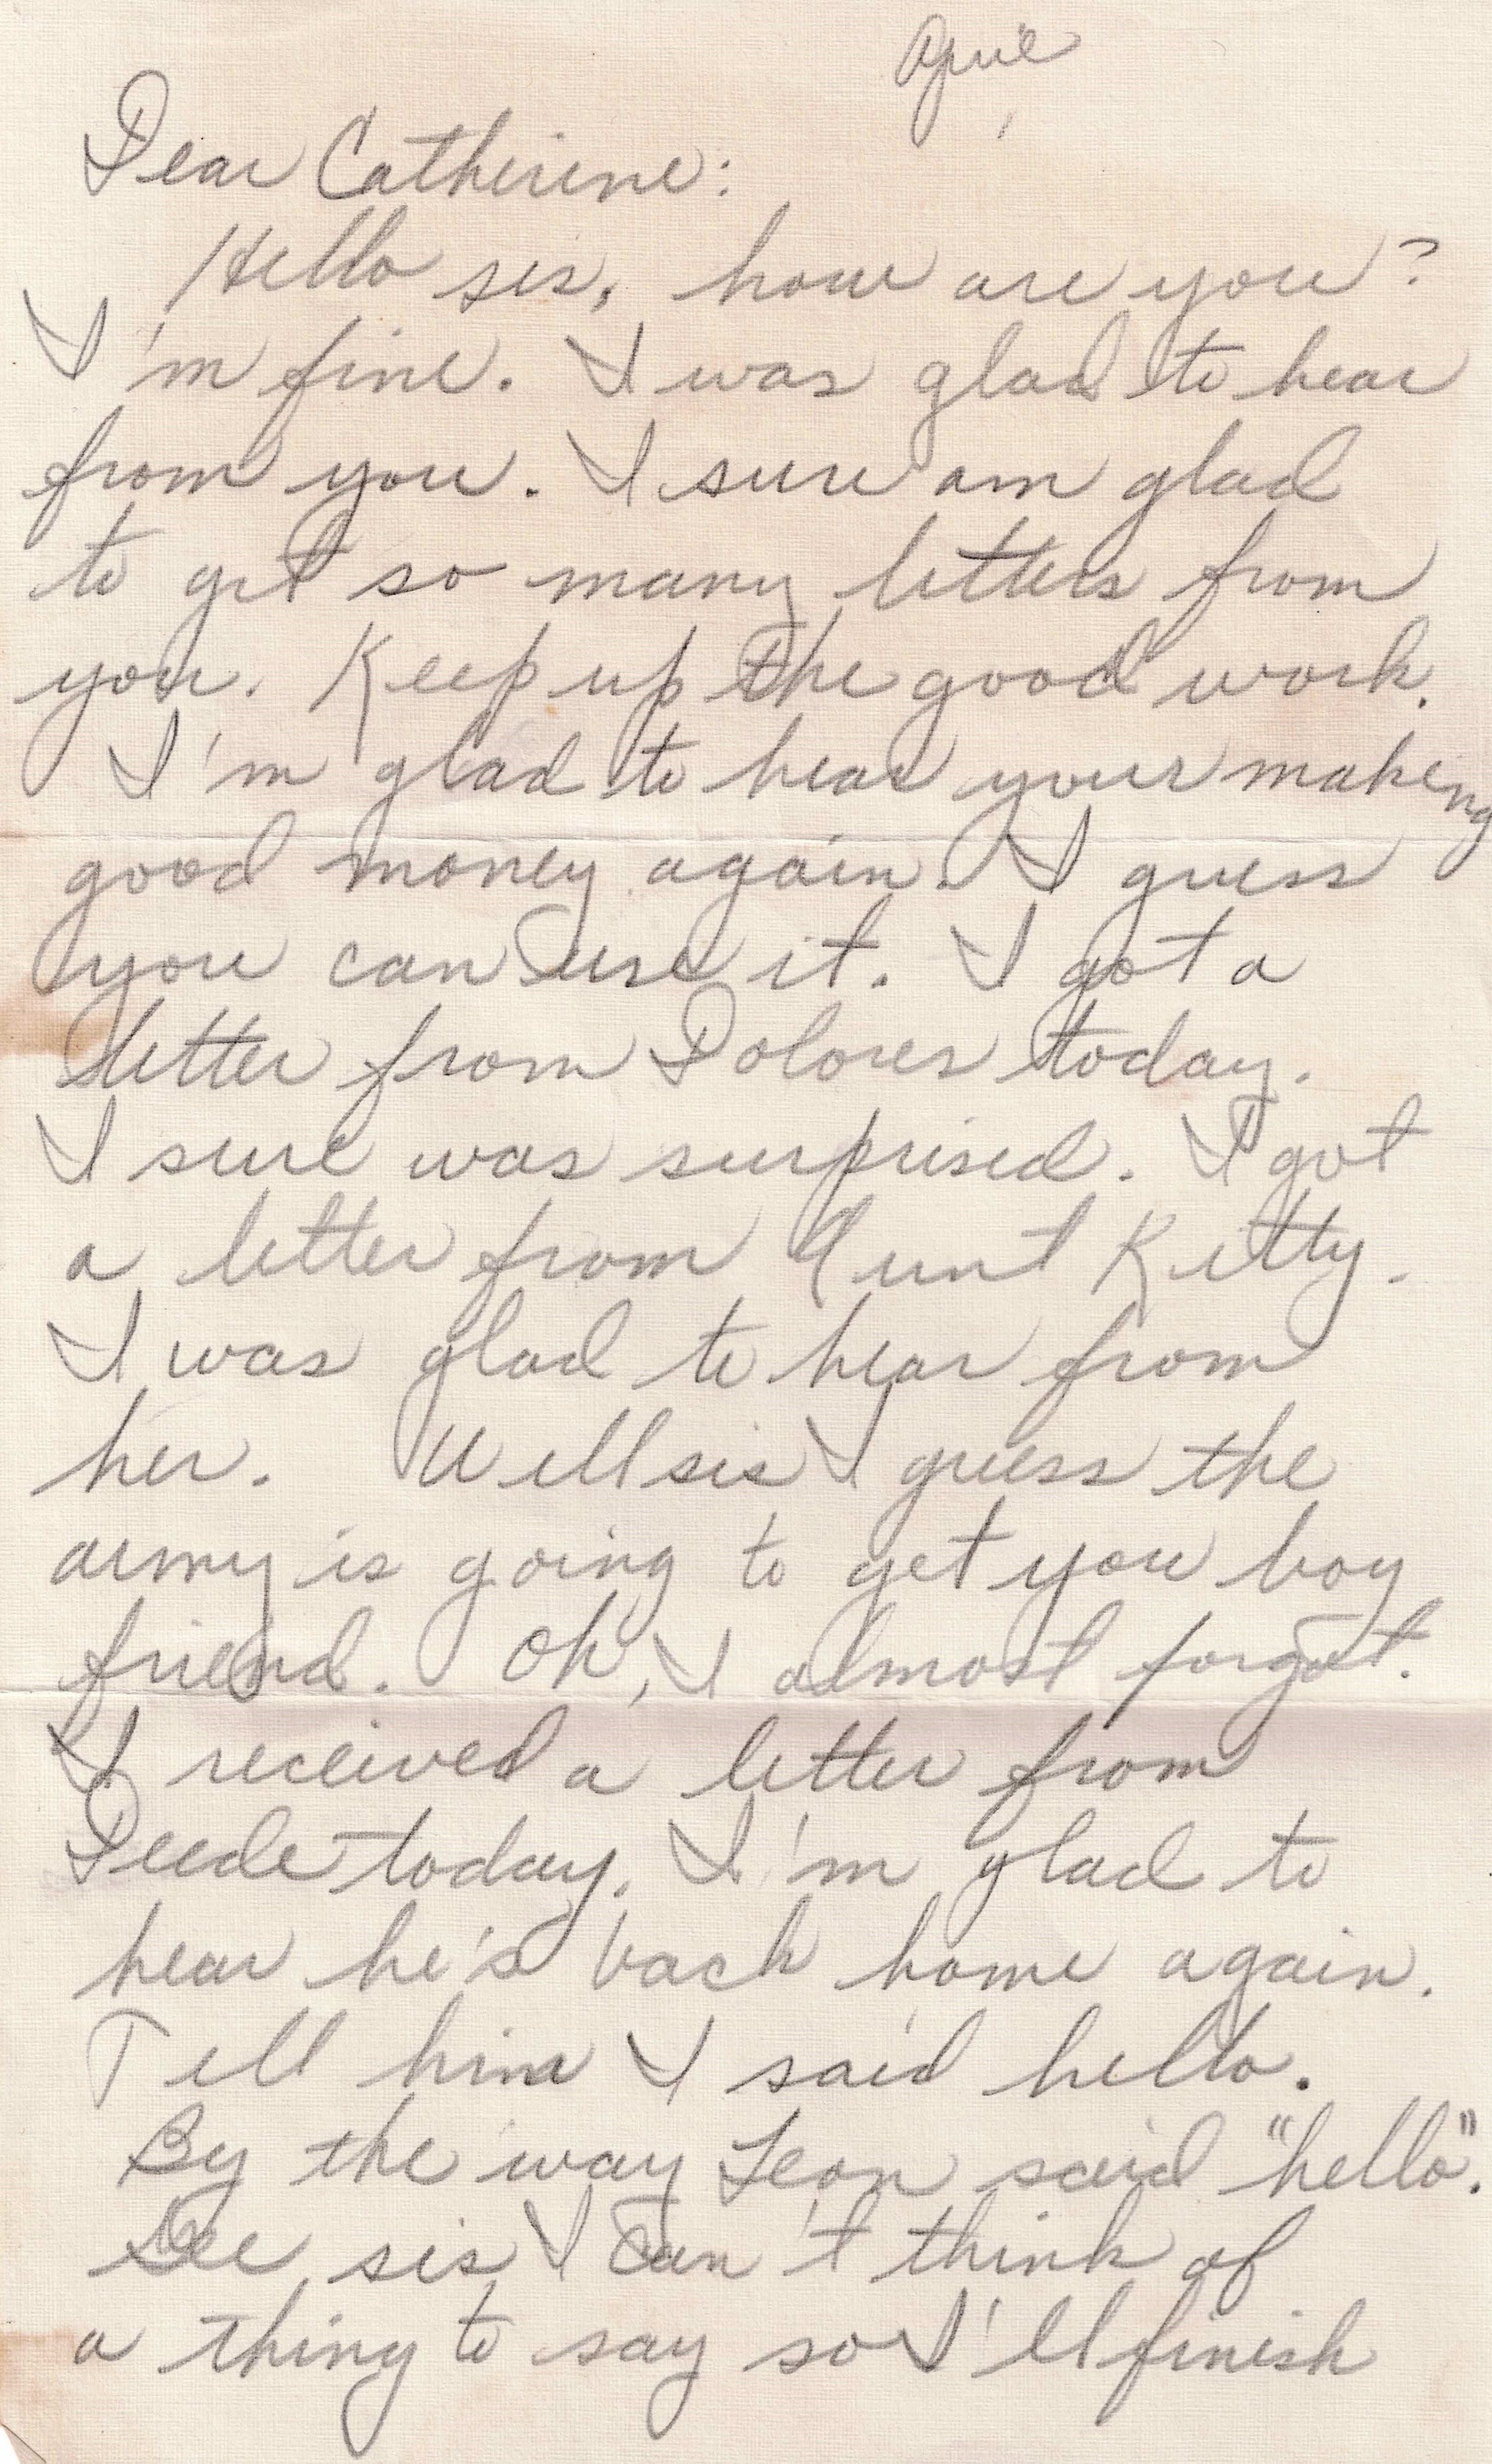 April
Dear Catherine:
Hello sis, how are you?
I'm fine. I was glad to hear
from you. I sure am glad
to get so many letters from
you. Keep up the good work.
I'm glad to hear your making
good money again. I guess
you can use it. I got a
letter from Dolores today.
I sure was surprised. I got
a letter from Aunt Kitty.
I was glad to hear from
her. Well sis I guess the
army is going to get you boy
friend. Oh, I almost forgot.
I received a letter from
Deede today. I'm glad to
hear he's back home again.
Tell him I said hello.
By the way Leon said "hello".
Gee sis I can't think of
a thing to say so I'll finish